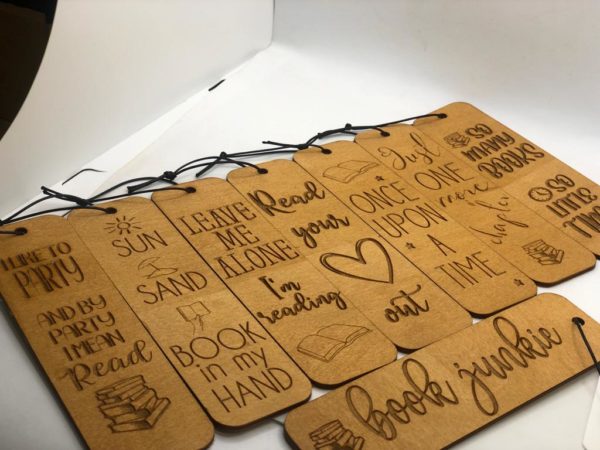 I LIKE TO
PARTY
AND BY
PARTY
I MEAN
Read
SUN
SAND
BOOK
in my
HAND
LEAVE
ME
ALONE
I'm
reading
Read
your
out
ONCE
UPON
A
TIME
Just
ONE
more
chapter
SO
MANY
BOOKS
SO
LITTLE
TIME
book junkie